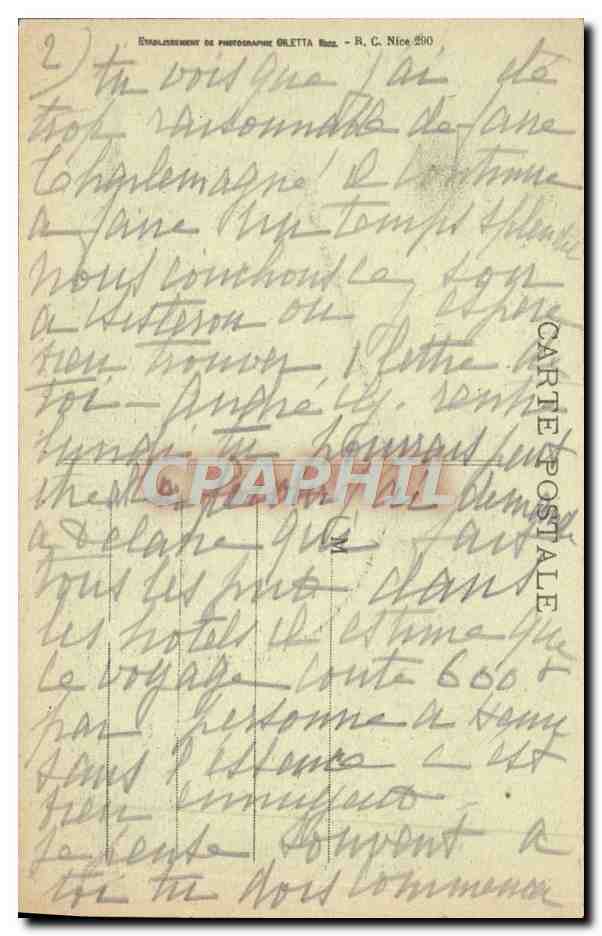 2)
ETABLISSEMENT DE PHOTOGRAPHIE GILETTA Nice. - R. C. Nice 290
tu vois que j'ai été
trop raisonnable de faire
Charlemagne il continue
a faire un temps splendide
nous couchons ce soir
a Sisteron ou j'espère
bien trouver 1 lettre de
toi - André rentre
lundi tu pourrais peut
demande
a que fait
tous les prix dans
les hotels il estime que
le voyage coute 600 f
par personne a
sans l'essence c est
bien
Je pense souvent a
toi tu dois commencer
CARTE POSTALE
M
CPAPHIL